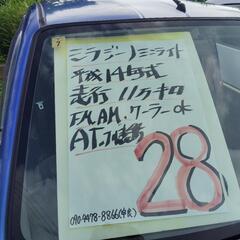 7
ミラジーノミニライト
平成14年式
走行 11万キロ
F.M.AM.クーラーOK
AT.
28
090-9478-8866(中良)